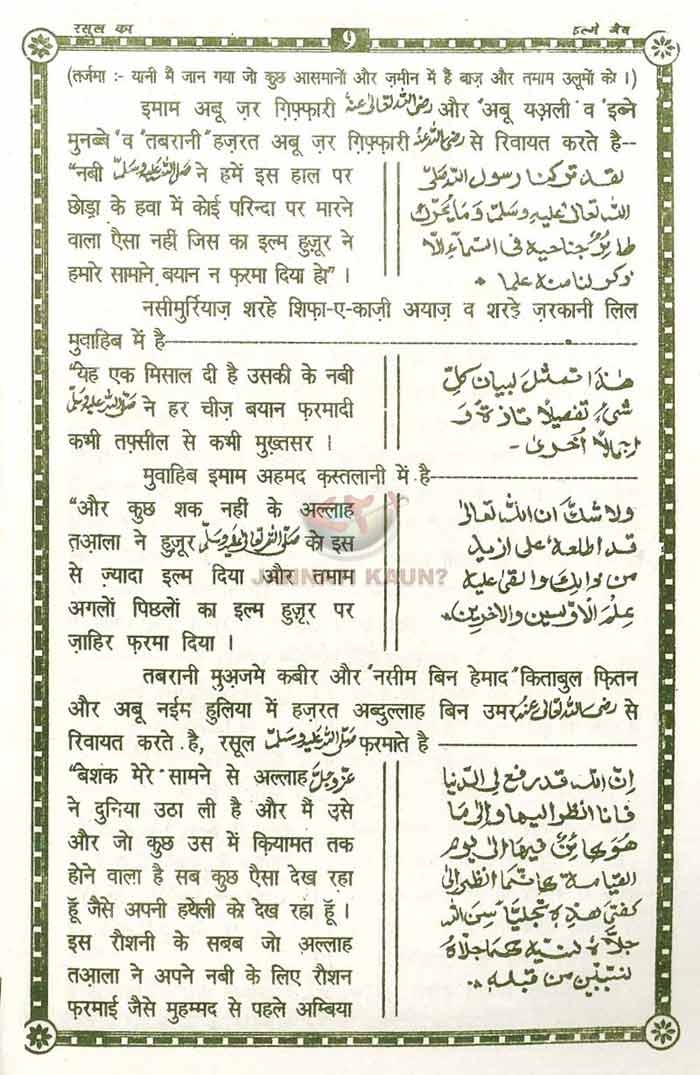 रसूल का
9
इल्मे ग़ैब
(तर्जमा :- यानी मैं जान गया जो कुछ आसमानों और ज़मीन में है बाज़ और तमाम उलूमों को ।)
इमाम अबू ज़र ग़िफ़्फ़ारी رضی اللہ تعالیٰ عنہ और "अबू यअ़ली" व इब्ने
मुनब्बे "व "तबरानी" हज़रत अबू ज़र ग़िफ़्फ़ारी رضی اللہ عنہ से रिवायत करते है--
"नबी صلی اللہ علیہ وسلم ने हमें इस हाल पर
छोड़ा के हवा में कोई परिन्दा पर मारने
वाला ऐसा नहीं जिस का इल्म हुज़ूर ने
हमारे सामाने बयान न फ़रमा दिया हो" ।
لقد تركنا رسول الله صلى
الله تعالى عليه وسلم وما يحرك
طائر جناحيه فى السماء الا
ذكر لنا منه علما *
नसीमुर्रियाज़ शरहे शिफ़ा-ए-काज़ी अयाज़ व शरड़े ज़रकानी लिल
मुवाहिब में है
"यह एक मिसाल दी है उसकी के नबी
صلی اللہ علیہ وسلم ने हर चीज़ बयान फ़रमादी
कभी तफ़्सील से कभी मुख़्तसर ।
هذا تمثل لبيان كل
شىء تفصيلا تازة و
اجمالا أخرى -
मुवाहिब इमाम अहमद क़स्तलानी में है-
"और कुछ शक नहीं के अल्लाह
तआ़ला ने हुज़ूर صلی اللہ تعالیٰ علیہ وسلم को इस
से ज़्यादा इल्म दिया और तमाम
अगलों पिछलों का इल्म हुज़ूर पर
ज़ाहिर फ़रमा दिया ।
ولا شك ان الله تعالى
قد اطلعه على ازيد
من ذالك والقى عليه
علم الاولين والاخرين *
JANNATI KAUN?
तबरानी मुअ़जमे कबीर और "नसीम बिन हेमाद" किताबुल फ़ितन
और अबू नईम हुलिया में हज़रत अब्दुल्लाह बिन उमर رضی اللہ تعالیٰ عنہ से
रिवायत करते है, रसूल صلی اللہ علیہ وسلم फ़रमाते है
"बेशक मेरे सामने से अल्लाह عزوجل
ने दुनिया उठा ली है और मैं उसे
और जो कुछ उस में क़ियामत तक
होने वाला है सब कुछ ऐसा देख रहा
हूँ जैसे अपनी हथेली को देख रहा हूँ ।
इस रौशनी के सबब जो अल्लाह
तआ़ला ने अपने नबी के लिए रौशन
फ़रमाई जैसे मुहम्मद से पहले अम्बिया
ان الله قد رفع لى الدنيا
فانا انظر اليها والى ما
هو كائن فيها الى يوم
القيامة كانما انظر الى
كفى هذه تجليا من الله
جلاه لنبيه كما جلاه
لنبيين من قبله *